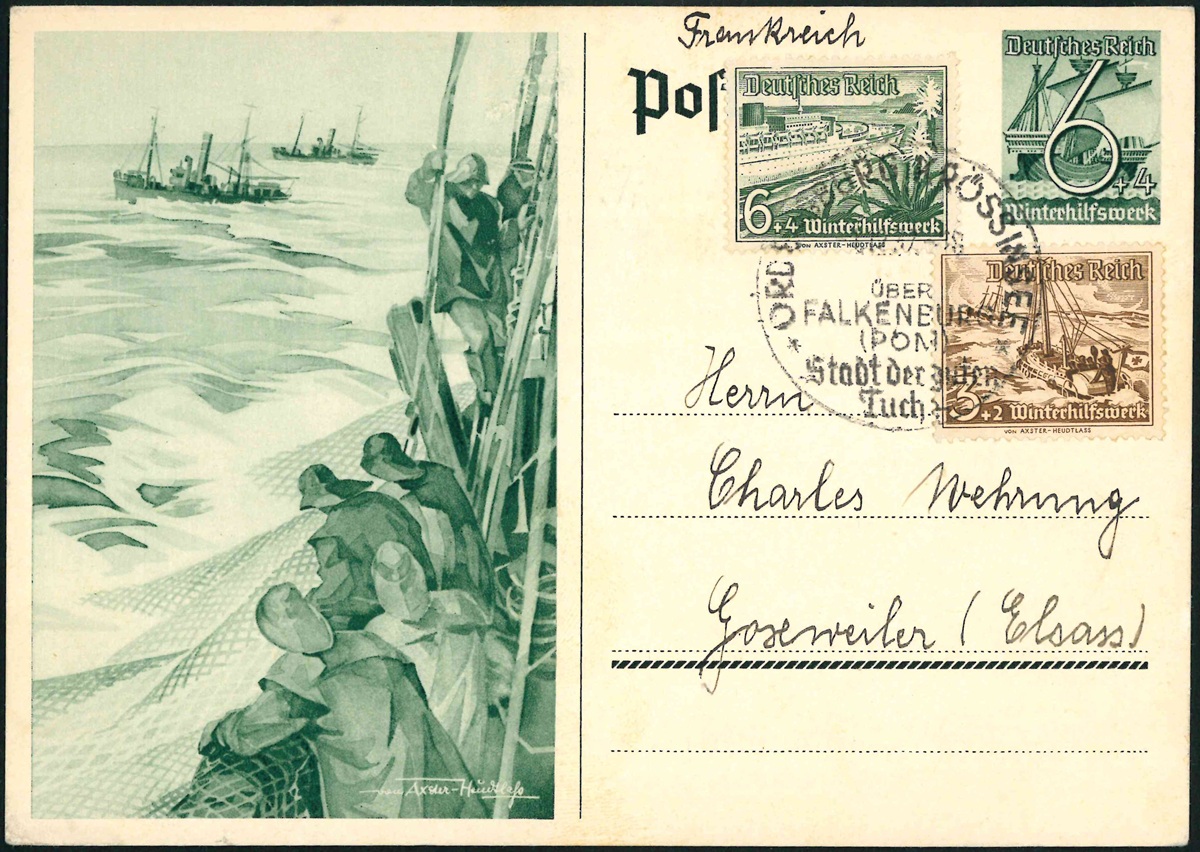 Frankreich
Pos
Deutsches Reich
6+4 Winterhilfswerk
VON AXSTER-HEUDTLASS
Deutsches Reich
6
+4
Winterhilfswerk
Deutsches Reich
3+2 Winterhilfswerk
VON AXSTER-HEUDTLASS
CRÖSSINSEE
ÜBER
FALKENBURG
(POM)
Stadt der guten
Tuche
Herrn
Charles Wehrung
Goxweiler (Elsass)
von Axster-Heudtlass